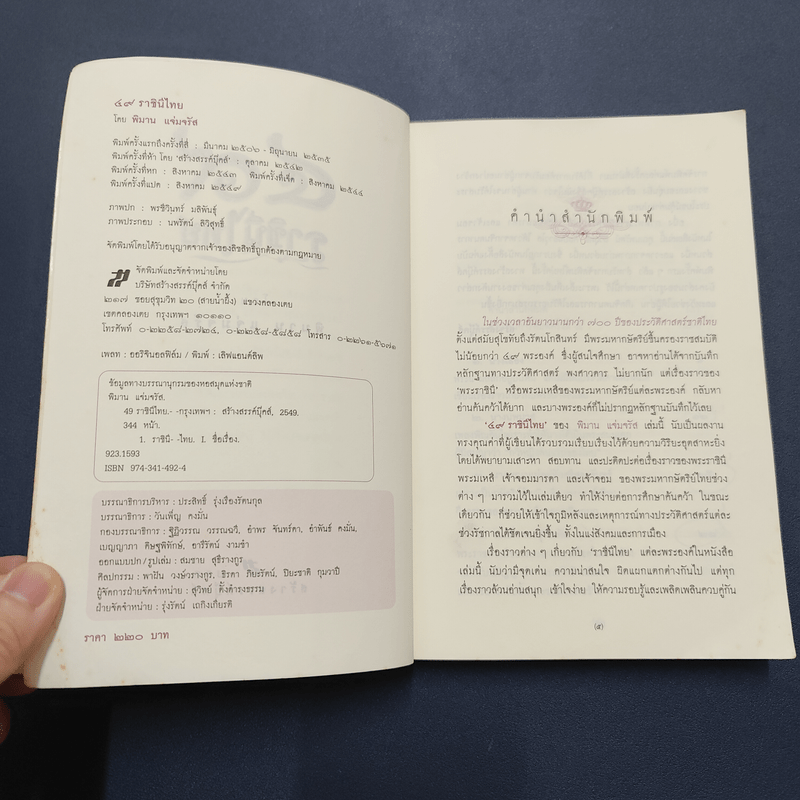 ๔๙ ราชินีไทย
โดย พิมาน แจ่มจรัส
พิมพ์ครั้งแรกถึงครั้งที่สี่ : มีนาคม ๒๕๐๖ - มิถุนายน ๒๕๓๕
พิมพ์ครั้งที่ห้า โดย 'สร้างสรรค์บุ๊คส์' : ตุลาคม ๒๕๔๒
พิมพ์ครั้งที่หก : สิงหาคม ๒๕๔๓ พิมพ์ครั้งที่เจ็ด : สิงหาคม ๒๕๔๔
พิมพ์ครั้งที่แปด : สิงหาคม ๒๕๔๙
ภาพปก : พรชีวินทร์ มลิพันธุ์
ภาพประกอบ : นพรัตน์ ลิวิสุทธิ์
จัดพิมพ์โดยได้รับอนุญาตจากเจ้าของลิขสิทธิ์ถูกต้องตามกฎหมาย
จัดพิมพ์และจัดจำหน่ายโดย
บริษัทสร้างสรรค์บุ๊คส์ จำกัด
๒๑๗ ซอยสุขุมวิท ๒๐ (สายน้ำผึ้ง) แขวงคลองเตย
เขตคลองเตย กรุงเทพฯ ๑๐๑๑๐
โทรศัพท์ ๐-๒๒๕๘-๒๗๒๔, ๐-๒๒๕๘-๕๘๕๘ โทรสาร ๐-๒๒๖๑-๕๖๗๑
เพลท : ออริจินอลฟิล์ม / พิมพ์ : เลิฟแอนด์ลิพ
ข้อมูลทางบรรณานุกรมของหอสมุดแห่งชาติ
พิมาน แจ่มจรัส.
49 ราชินีไทย.- -กรุงเทพฯ : สร้างสรรค์บุ๊คส์, 2549.
344 หน้า.
1. ราชินี- -ไทย. I. ชื่อเรื่อง.
923.1593
ISBN 974-341-492-4
บรรณาธิการบริหาร : ประสิทธิ์ รุ่งเรืองรัตนกุล
บรรณาธิการ : วันเพ็ญ คงมั่น
กองบรรณาธิการ : ฐิฏิวรรณ วรรณฉวี, อำพร จันทร์คา, อำพันธ์ คงมั่น,
เบญญาภา ดิษฐพิทักษ์, อารีรัตน์ งามขำ
ออกแบบปก / รูปเล่ม : สมชาย สุธีรางกูร
ศิลปกรรม : พาฝัน วงษ์วรางกูร, ธิรดา ภิยะรัตน์, ปิยะชาติ กุมวาปี
ผู้จัดการฝ่ายจัดจำหน่าย : สุวิทย์ ตั้งดำรงธรรม
ฝ่ายจัดจำหน่าย : รุ่งรัตน์ เถกิงเกียรติ
ราคา ๒๒๐ บาท
คำนำสำนักพิมพ์
ในช่วงเวลาอันยาวนานกว่า ๗๐๐ ปีของประวัติศาสตร์ชาติไทย
ตั้งแต่สมัยสุโขทัยถึงรัตนโกสินทร์ มีพระมหากษัตริย์ขึ้นครองราชสมบัติ
ไม่น้อยกว่า ๔๙ พระองค์ ซึ่งผู้สนใจศึกษา อาจหาอ่านได้จากบันทึก
หลักฐานทางประวัติศาสตร์ พงศาวดาร ไม่ยากนัก แต่เรื่องราวของ
'พระราชินี' หรือพระมเหสีของพระมหากษัตริย์แต่ละพระองค์ กลับหา
อ่านค้นคว้าได้ยาก และบางพระองค์ก็ไม่ปรากฏหลักฐานบันทึกไว้เลย
'๔๙ ราชินีไทย' ของ พิมาน แจ่มจรัส เล่มนี้ นับเป็นผลงาน
ทรงคุณค่าที่ผู้เขียนได้รวบรวมเรียบเรียงไว้ด้วยความวิริยะอุตสาหะยิ่ง
โดยได้พยายามเสาะหา สอบทาน และปะติดปะต่อเรื่องราวของพระราชินี
พระมเหสี เจ้าจอมมารดา และเจ้าจอม ของพระมหากษัตริย์ไทยช่วง
ต่าง ๆ มารวมไว้ในเล่มเดียว ทำให้ง่ายต่อการศึกษาค้นคว้า ในขณะ
เดียวกัน ก็ช่วยให้เข้าใจภูมิหลังและเหตุการณ์ทางประวัติศาสตร์แต่ละ
ช่วงรัชกาลได้ชัดเจนยิ่งขึ้น ทั้งในแง่สังคมและการเมือง
เรื่องราวต่าง ๆ เกี่ยวกับ 'ราชินีไทย' แต่ละพระองค์ในหนังสือ
เล่มนี้ นับว่ามีจุดเด่น ความน่าสนใจ ผิดแผกแตกต่างกันไป แต่ทุก
เรื่องราวล้วนอ่านสนุก เข้าใจง่าย ให้ความรอบรู้และเพลิดเพลินควบคู่กัน
(๕)